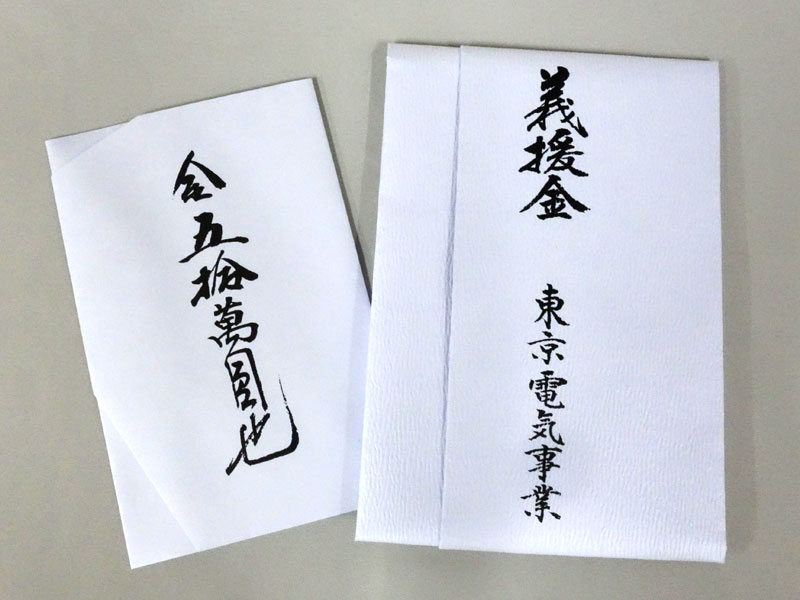 義援金
東京電気事業
金五拾萬圓也